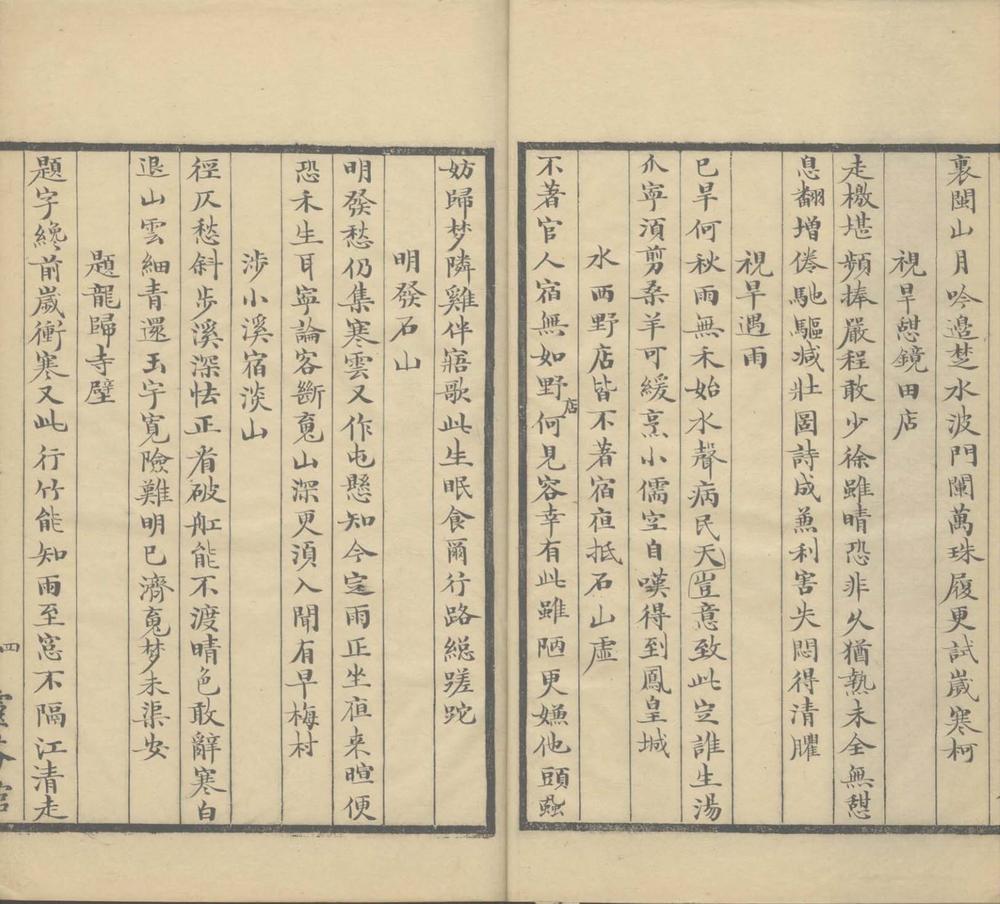 裏閩山月吟邉楚水波門闌萬珠履更試歲寒柯
視旱憇鏡田店
走檄堪頻捧嚴程敢少徐雖晴恐非久猶熟未全無憇
息翻增倦馳驅減壯圖詩成兼利害失悶得清臞
視旱遇雨
已旱何秋雨無禾始水聲病民天豈意致此定誰生湯
爪寧須剪桑羊可緩烹小儒空自嘆得到鳳皇城
水西野店皆不著宿夜抵石山虛
不著官人宿無如野店何見容幸有此雖陋更嫌他頭蝨
妨歸梦隣雞伴寤歌此生眠食爾行路総蹉跎
明發石山
明發愁仍集寒雲又作屯懸知今定雨正坐夜来暄便
恐禾生耳寧論客斷䰟山深更須入聞有早梅村
涉小溪宿淡山
徑仄愁斜步溪深怯正看破舡能不渡晴色敢辭寒白
退山雲細青還玉宇寬險難明已濟䰟梦未渠安
題龍歸寺壁
題字纔前歲衝寒又此行竹能知雨至窓不隔江清走
四